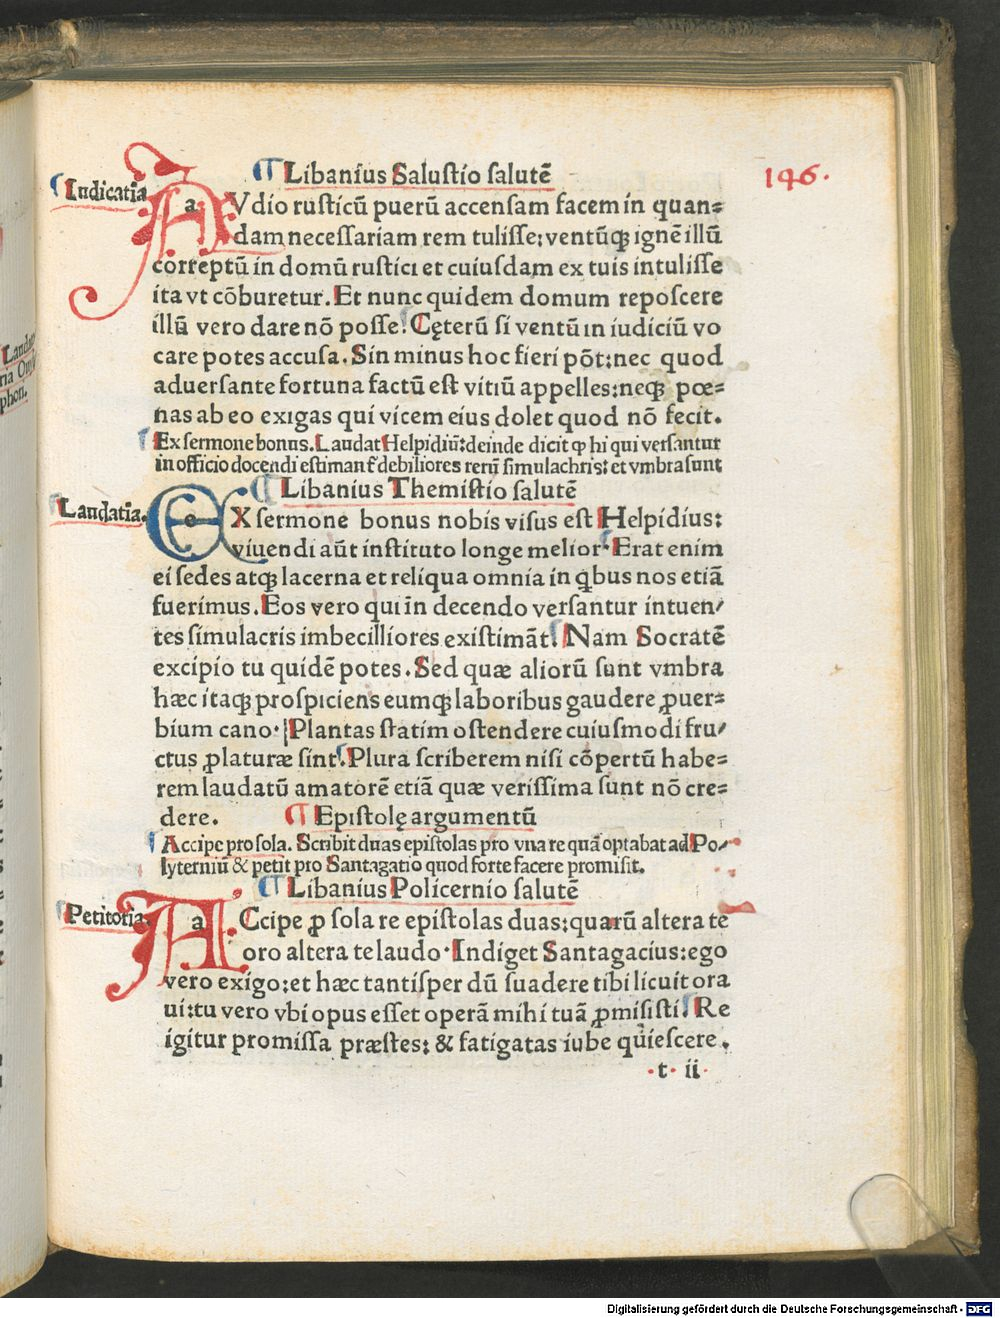 146.
¶ Libanius Salustio salutē
Iudicatia
aVdio rusticū puerū accensam facem in quan=
dam necessariam rem tulisse: ventūqꝫ ignē illū
correptū in domū rustici et cuiusdam ex tuis intulisse
ita vt cōburetur. Et nunc quidem domum reposcere
illū vero dare nō posse. Cęterū si ventū in iudiciū vo
care potes accusa. Sin minus hoc fieri pōt: nec quod
aduersante fortuna factū est vitiū appelles: neqꝫ pœ=
nas ab eo exigas qui vicem eius dolet quod nō fecit.
Ex sermone bonus. Laudat Helpidiū: deinde dicit ꝙ hi qui versantur
in officio docendi estimant̃ debiliores rerū simulachris: et vmbra sunt
¶ Libanius Themistio salutē
Laudatia.
eX sermone bonus nobis visus est Helpidius:
viuendi aūt instituto longe melior. Erat enim
ei sedes atqꝫ lacerna et reliqua omnia in qͥbus nos etiā
fuerimus. Eos vero qui in decendo versantur intuen/
tes simulacris imbecilliores existimāt. Nam Socratē
excipio tu quidē potes. Sed quæ aliorū sunt vmbra
hæc itaqꝫ prospiciens eumqꝫ laboribus gaudere ꝓuer=
bium cano. Plantas statim ostendere cuiusmodi fru/
ctus ꝓlaturæ sint. Plura scriberem nisi cōpertū habe=
rem laudatū amatorē etiā quæ verissima sunt nō cre=
dere. ¶ Epistolę argumentū
Accipe pro sola. Scribit duas epistolas pro vna re quā optabat ad Po/
lyterniū & petit pro Santagatio quod forte facere promisit.
¶ Libanius Policernio salutē
Petitotia.
aCcipe ꝓ sola re epistolas duas: quarū altera te
oro altera te laudo. Indiget Santagacius: ego
vero exigo: et hæc tantisper dū suadere tibi licuit ora
ui: tu vero vbi opus esset operā mihi tuā ꝓmisisti. Re
igitur promissa præstes: & fatigatas iube quiescere.
.t. ii.
Laudato
ria On
phon.
Digitalisierung gefördert durch die Deutsche Forschungsgemeinschaft - DFG